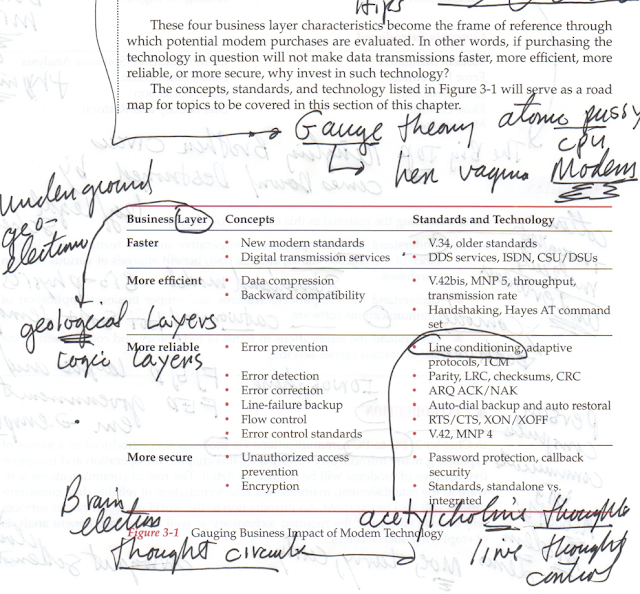 These four business layer characteristics become the frame of reference through
which potential modem purchases are evaluated. In other words, if purchasing the
technology in question will not make data transmissions faster, more efficient, more
reliable, or more secure, why invest in such technology?
The concepts, standards, and technology listed in Figure 3-1 will serve as a road
map for topics to be covered in this section of this chapter.
Gauge theory atomic pussy
CPU
her vagina Modems
underground
geo-
elections
Business Layer Concepts Standards and Technology
Faster • New modem standards • V.34, older standards
• Digital transmission services • DDS services, ISDN, CSU/DSUs
More efficient • Data compression • V.42bis, MNP 5, throughput,
• Backward compatibility transmission rate
• Handshaking, Hayes AT command
set
geological Layers
More reliable • Error prevention • Line conditioning, adaptive
Logic Layers
protocols, TCM
• Error detection • Parity, LRC, checksums, CRC
• Error correction • ARQ ACK/NAK
• Line-failure backup • Auto-dial backup and auto restoral
• Flow control • RTS/CTS, XON/XOFF
• Error control standards • V.42, MNP 4
More secure • Unauthorized access • Password protection, callback
prevention security
• Encryption • Standards, standalone vs.
integrated
Brain
acetylcholine thoughts
Figure 3-1 Gauging Business Impact of Modem Technology
thought circuits
line thought
control